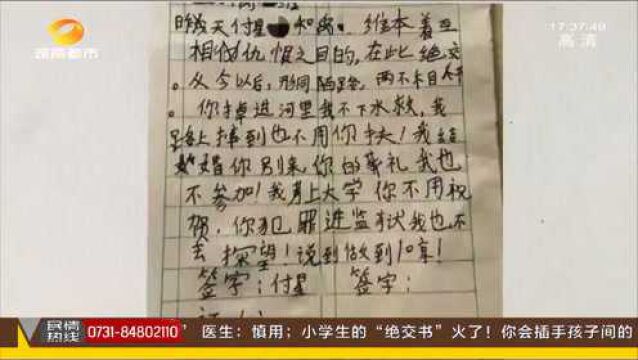 都市
17:37:49
高清
天付星 和 离。维本着互
相仇恨之目的,在此绝交
。从今以后,形同陌路,两不相
你掉进河里我不下水救,我
路上摔到也不用你扶!我结
婚你别来,你的葬礼我也
不参加!我考上大学你不用祝
贺,你犯罪进监狱我也不
去探望!说到做到
签字:付星 签字:
民情热线 0731-84802110 ” 医生:慎用;小学生的“绝交书”火了!你会插手孩子间的